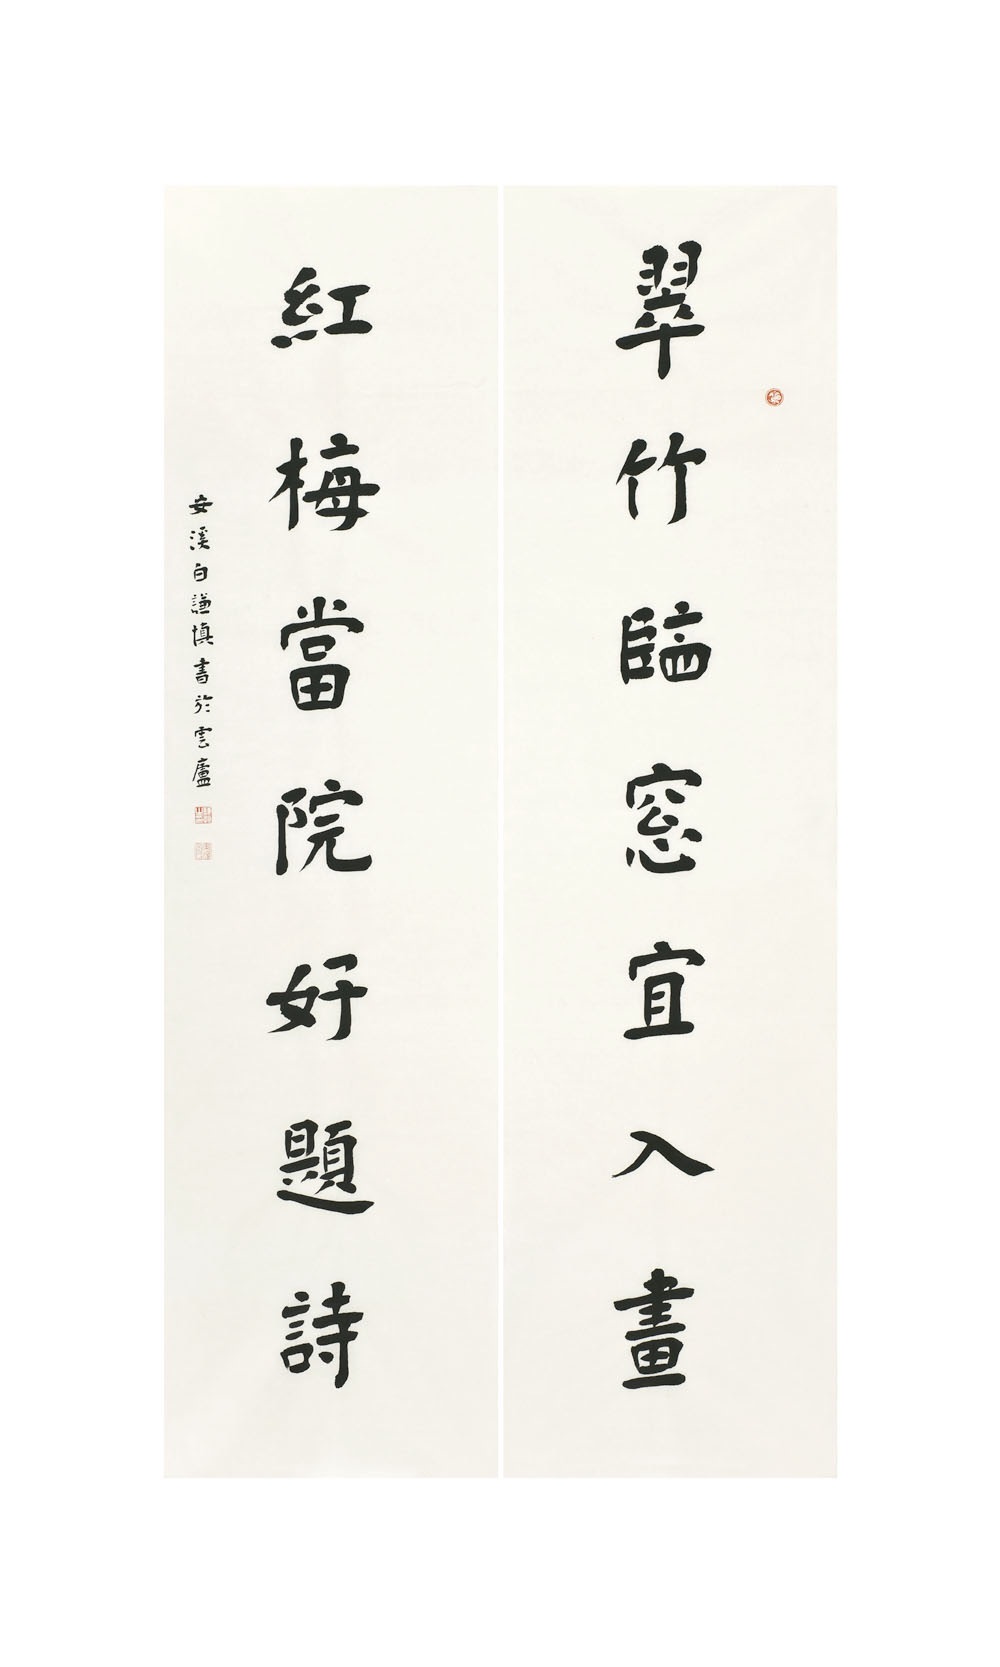 翠竹臨窓宜入畫
紅梅當院好題詩
安溪白謙慎書於雲廬